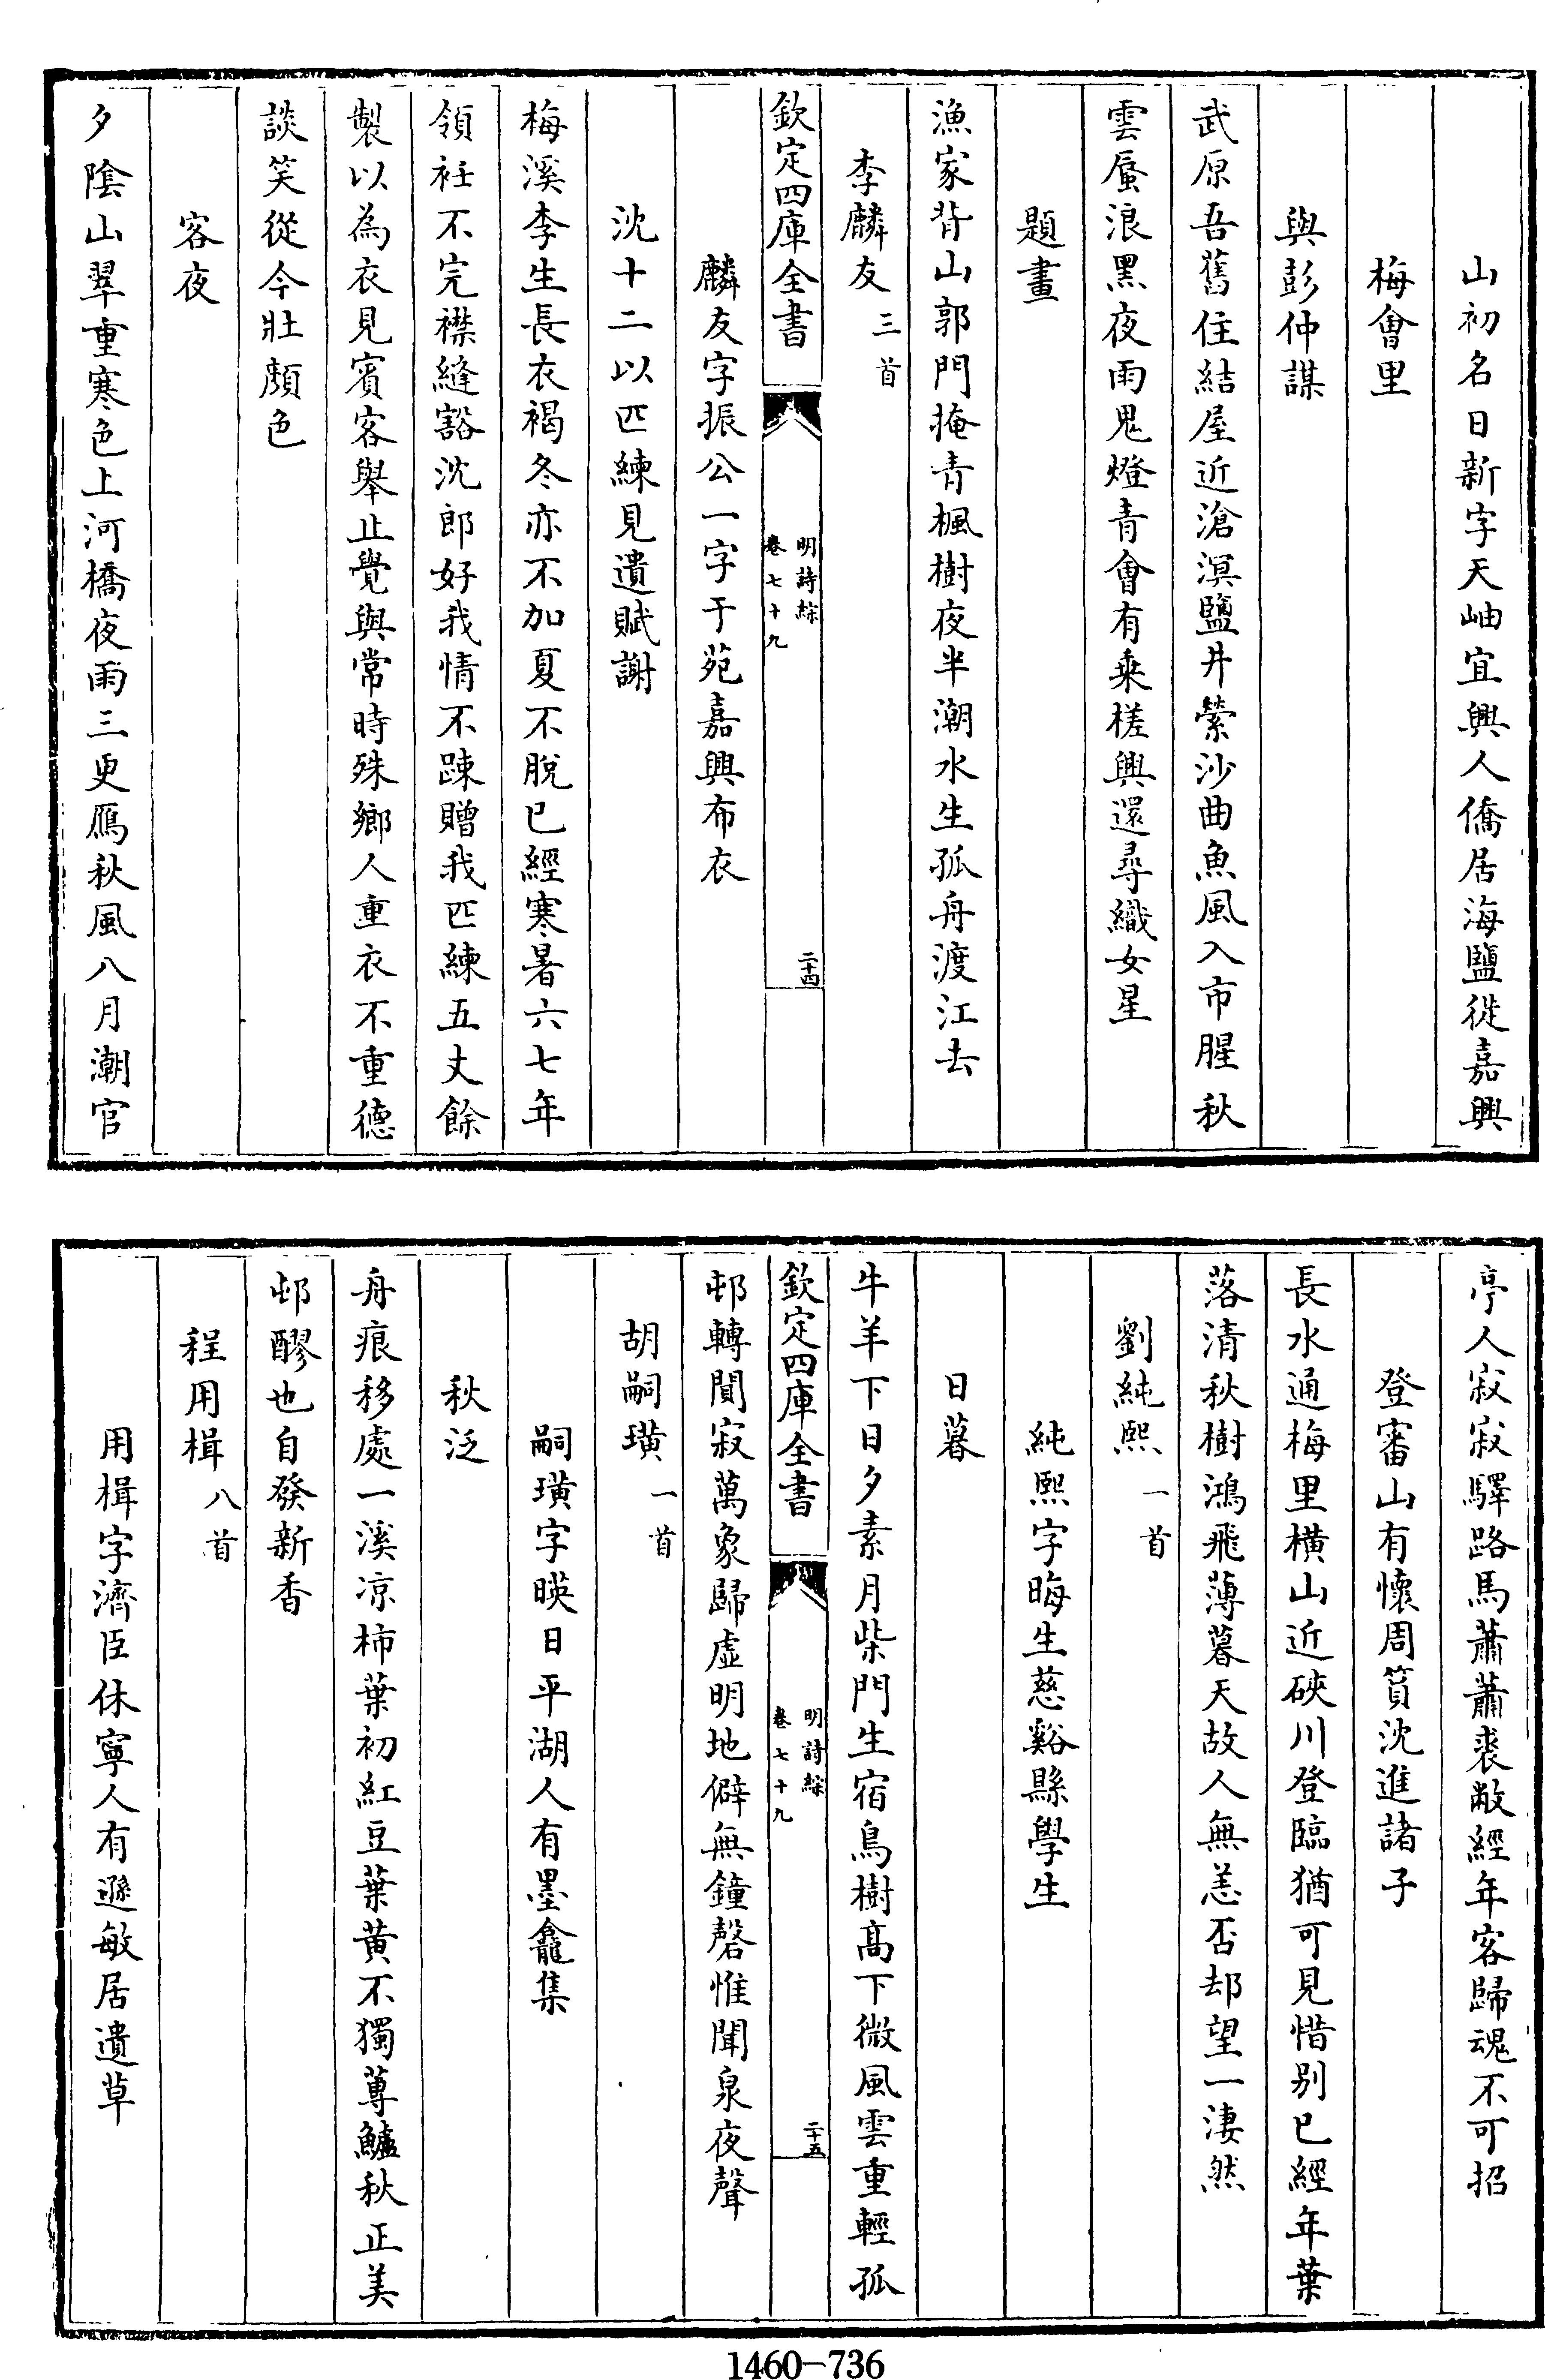 山初名日新字天岫宜興人僑居海鹽徙嘉興
梅會里
與彭仲謀
武原吾舊住結屋近滄溟鹽井縈沙曲魚風入市腥秋
雲蜃浪黑夜雨鬼燈青會有乘槎興還尋織女星
題畫
漁家背山郭門掩青楓樹夜半潮水生孤舟渡江去
李麟友三首
欽定四庫全書
明詩綜
卷七十九
二十四
麟友字振公一字于苑嘉興布衣
沈十二以匹練見遺賦謝
梅溪李生長衣褐冬亦不加夏不脫已經寒暑六七年
領袵不完襟縫豁沈郎好我情不踈贈我匹練五丈餘
製以為衣見賓客舉止覺與常時殊鄉人重衣不重德
談笑從今壯顔色
客夜
夕陰山翠重寒色上河橋夜雨三更鴈秋風八月潮官
亭人寂寂驛路馬蕭蕭裘敝經年客歸魂不可招
登審山有懷周篔沈進諸子
長水通梅里横山近硤川登臨猶可見惜别已經年葉
落清秋樹鴻飛薄暮天故人無恙否却望一淒然
劉純熙一首
純熙字晦生慈谿縣學生
日暮
牛羊下日夕素月柴門生宿鳥樹高下微風雲重輕孤
欽定四庫全書
明詩綜
卷七十九
二十五
邨轉闃寂萬象歸虛明地僻無鐘磬惟聞泉夜聲
胡嗣璜一首
嗣璜字暎日平湖人有墨龕集
秋泛
舟痕移處一溪凉柿葉初紅豆葉黄不獨蓴鱸秋正美
邨醪也自發新香
程用楫八首
用楫字濟臣休寧人有遜敏居遺草
1460-736